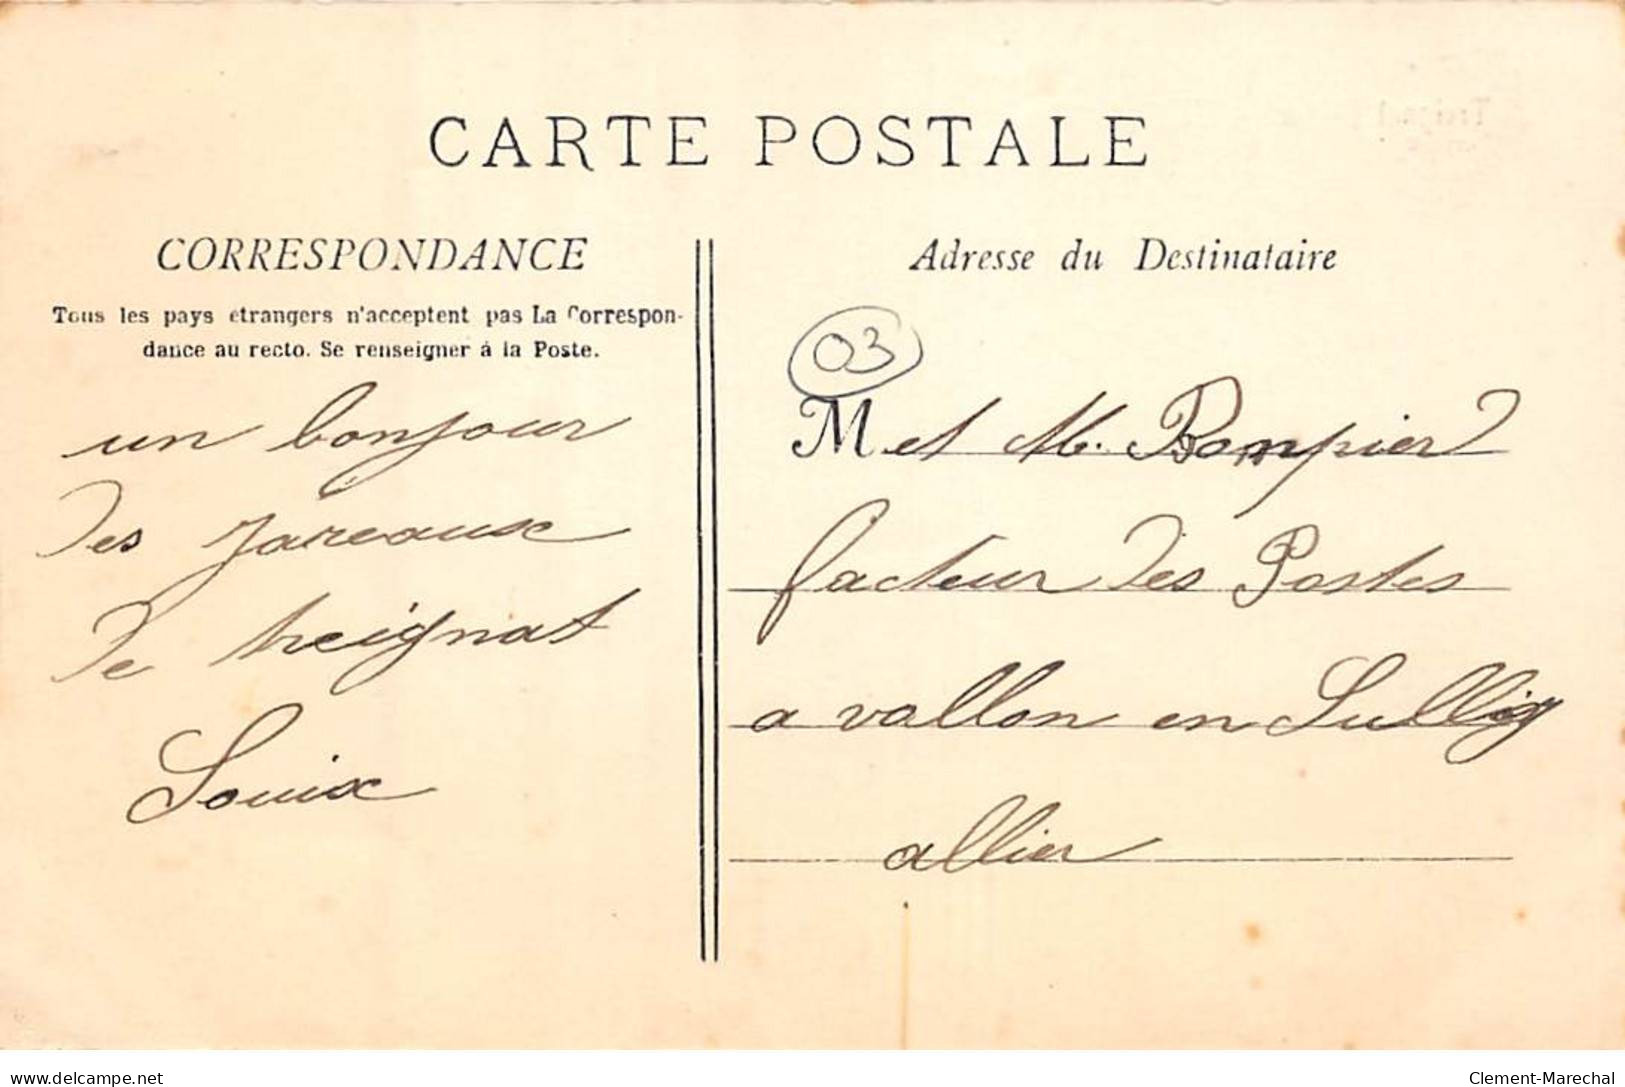 CARTE POSTALE
CORRESPONDANCE
Tous les pays étrangers n'acceptent pas La Correspon-
dance au recto. Se renseigner à la Poste.
un bonjour
des jareaux
de treignat
Louix
Adresse du Destinataire
03
M et M. Pompier
facteur des Postes
a vallon en Sullix
allier
delcampe.net
Clement-Marechal